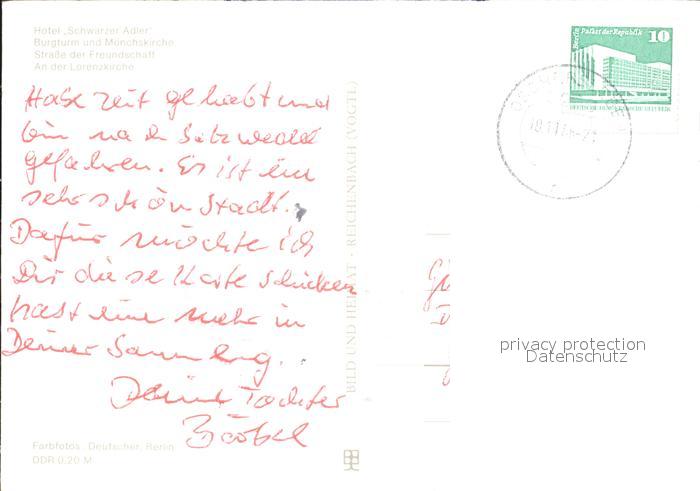 Hotel „Schwarzer Adler"
Burgturm und Mönchskirche
Straße der Freundschaft
An der Lorenzkirche
Habe Zeit gehabt und
bin nach Salzwedel
gefahren. Es ist ein
sehr schön Stadt.
Dafür möchte ich
Dir diese Karte schicken
hast eine mehr in
Deiner Sammlung.
Deine Tochter
Bärbel
Farbfotos: Deutscher, Berlin
DDR 0,20 M
BILD UND HEIMAT · REICHENBACH (VOGTL)
Berlin Palast der Republik
10
DEUTSCHE DEMOKRATISCHE REPUBLIK
privacy protection
Datenschutz